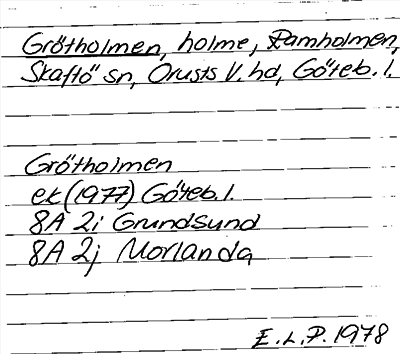 Grötholmen, holme, Ramholmen,
Skaftö sn, Orusts V. hd, Göteb. l.
Grötholmen
ek (1977) Göteb. l.
8A 2i Grundsund
8A 2j Morlanda
E.L.P. 1978